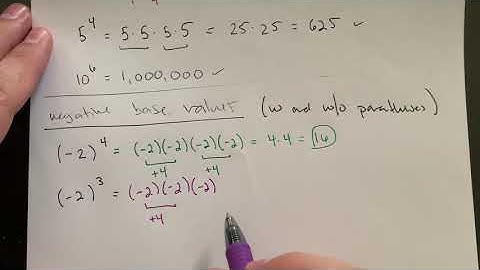 5⁴ = 5·5·5·5 = 25·25 = 625 ✓
10⁶ = 1,000,000 ✓
negative base values (w and w/o parentheses)
(-2)⁴ = (-2)(-2)(-2)(-2) = 4·4 = 16
+4 +4
(-2)³ = (-2)(-2)(-2)
+4